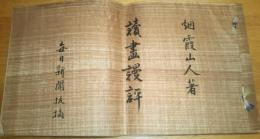 烟霞山人著
讀畫謾評
每日新聞抜摘